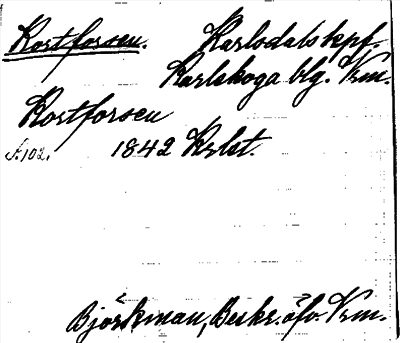 Kortforsen. Karlsdals kpf.
Karlskoga blg. Vrm.
Kortforsen
s. 102. 1842 Krlst.
Björkman, Beskr. öfv. Vrm.